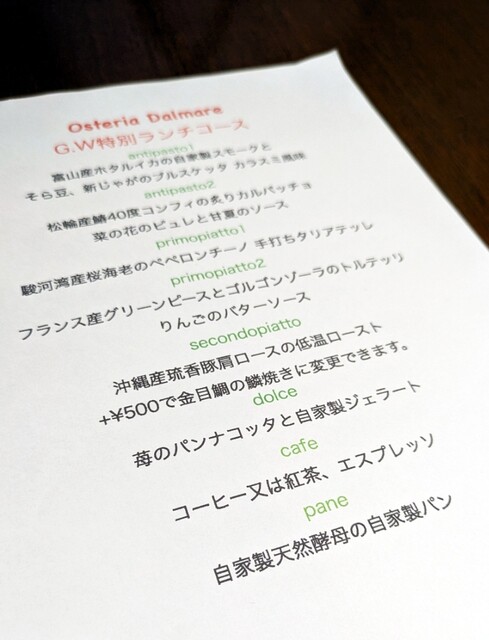 Osteria Dalmare
G.W特別ランチコース
antipasto1
富山産ホタルイカの自家製スモークと
そら豆、新じゃがのブルスケッタ カラスミ風味
antipasto2
松輪産鯖40度コンフィの炙りカルパッチョ
菜の花のピュレと甘夏のソース
primopiatto1
駿河湾産桜海老のペペロンチーノ 手打ちタリアテッレ
primopiatto2
フランス産グリーンピースとゴルゴンゾーラのトルテッリ
りんごのバターソース
secondopiatto
沖縄産琉香豚肩ロースの低温ロースト
+¥500で金目鯛の鱗焼きに変更できます。
dolce
苺のパンナコッタと自家製ジェラート
cafe
コーヒー又は紅茶、エスプレッソ
pane
自家製天然酵母の自家製パン